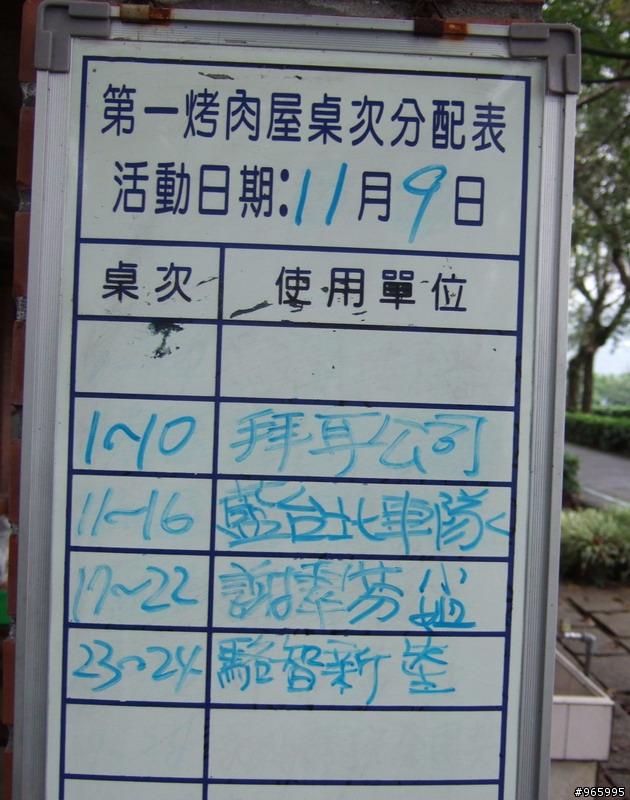 第一烤肉屋桌次分配表
活動日期:11月9日
桌次 使用單位
1~10 拜耳公司
11~16 藍台北車隊
17~22 謝翠芳小姐
23~24 駱智新
#965995